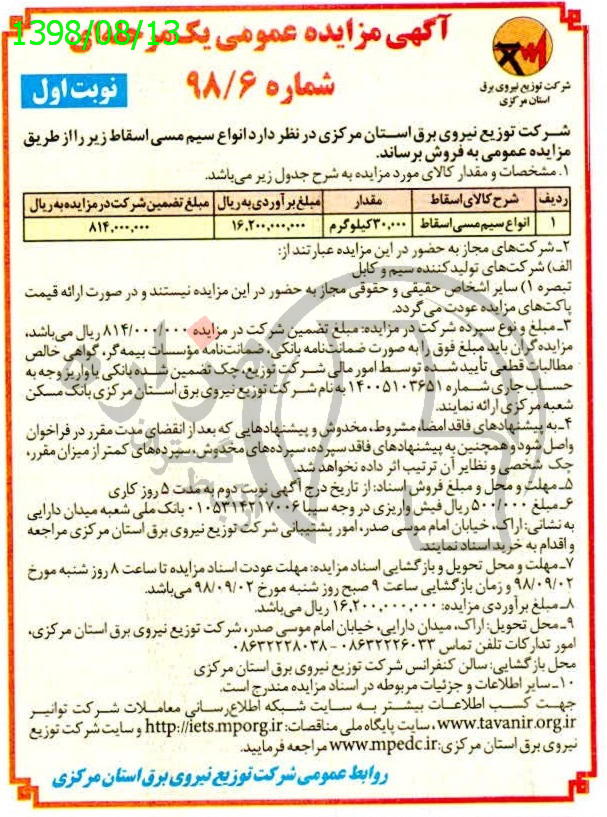 1398/08/13
آگهی مزایده عمومی یک مرحله‌ای
شماره ۹۸/۶
نوبت اول
شرکت توزیع نیروی برق
استان مرکزی
شرکت توزیع نیروی برق استان مرکزی در نظر دارد انواع سیم مسی اسقاط زیر را از طریق
مزایده عمومی به فروش برساند.
۱. مشخصات و مقدار کالای مورد مزایده به شرح جدول زیر می‌باشد.
ردیف شرح کالای اسقاط مقدار مبلغ برآوردی به ریال مبلغ تضمین شرکت در مزایده به ریال
۱ انواع سیم مسی اسقاط ۳۰,۰۰۰ کیلوگرم ۱۶,۲۰۰,۰۰۰,۰۰۰ ۸۱۴,۰۰۰,۰۰۰
۲ـ شرکت‌های مجاز به حضور در این مزایده عبارتند از:
الف) شرکت‌های تولیدکننده سیم و کابل
تبصره ۱) سایر اشخاص حقیقی و حقوقی مجاز به حضور در این مزایده نیستند و در صورت ارائه قیمت
پاکت‌های مزایده عودت می‌گردد.
۳ـ مبلغ و نوع سپرده شرکت در مزایده: مبلغ تضمین شرکت در مزایده ۸۱۴/۰۰۰/۰۰۰ ریال می‌باشد،
مزایده‌گران باید مبلغ فوق را به صورت ضمانت‌نامه بانکی، ضمانت‌نامه مؤسسات بیمه‌گر، گواهی خالص
مطالبات قطعی تأیید شده توسط امور مالی شرکت توزیع، چک تضمین شده بانکی یا واریز وجه به
حساب جاری شماره ۱۴۰۰۵۱۰۳۶۵۱ به نام شرکت توزیع نیروی برق استان مرکزی بانک مسکن
شعبه مرکزی ارائه نمایند.
۴ـ به پیشنهادهای فاقد امضاء، مشروط، مخدوش و پیشنهادهایی که بعد از انقضای مدت مقرر در فراخوان
واصل شود و همچنین به پیشنهادهای فاقد سپرده، سپرده‌های مخدوش، سپرده‌های کمتر از میزان مقرر،
چک شخصی و نظایر آن ترتیب اثر داده نخواهد شد.
۵ـ مهلت و محل و مبلغ فروش اسناد: از تاریخ درج آگهی نوبت دوم به مدت ۵ روز کاری
۶ـ مبلغ ۵۰۰/۰۰۰ ریال فیش واریزی در وجه سیبا ۰۱۰۵۳۱۴۲۱۷۰۰۶ بانک ملی شعبه میدان دارایی
به نشانی: اراک، خیابان امام موسی صدر، امور پشتیبانی شرکت توزیع نیروی برق استان مرکزی مراجعه
و اقدام به خرید اسناد نمایند.
۷ـ مهلت و محل تحویل و بازگشایی اسناد مزایده: مهلت عودت اسناد مزایده تا ساعت ۸ روز شنبه مورخ
۹۸/۰۹/۰۲ و زمان بازگشایی ساعت ۹ صبح روز شنبه مورخ ۹۸/۰۹/۰۲ می‌باشد.
۸ـ مبلغ برآوردی مزایده: ۱۶,۲۰۰,۰۰۰,۰۰۰ ریال می‌باشد.
۹ـ محل تحویل: اراک، میدان دارایی، خیابان امام موسی صدر، شرکت توزیع نیروی برق استان مرکزی،
امور تدارکات تلفن تماس ۰۸۶۳۲۲۲۶۰۳۳ - ۰۸۶۳۲۲۲۸۰۳۸
محل بازگشایی: سالن کنفرانس شرکت توزیع نیروی برق استان مرکزی
۱۰ـ سایر اطلاعات و جزئیات مربوطه در اسناد مزایده مندرج است.
جهت کسب اطلاعات بیشتر به سایت شبکه اطلاع‌رسانی معاملات شرکت توانیر
www.tavanir.org.ir، سایت پایگاه ملی مناقصات: http://iets.mporg.ir و سایت شرکت توزیع
نیروی برق استان مرکزی: www.mpedc.ir مراجعه فرمایید.
روابط عمومی شرکت توزیع نیروی برق استان مرکزی